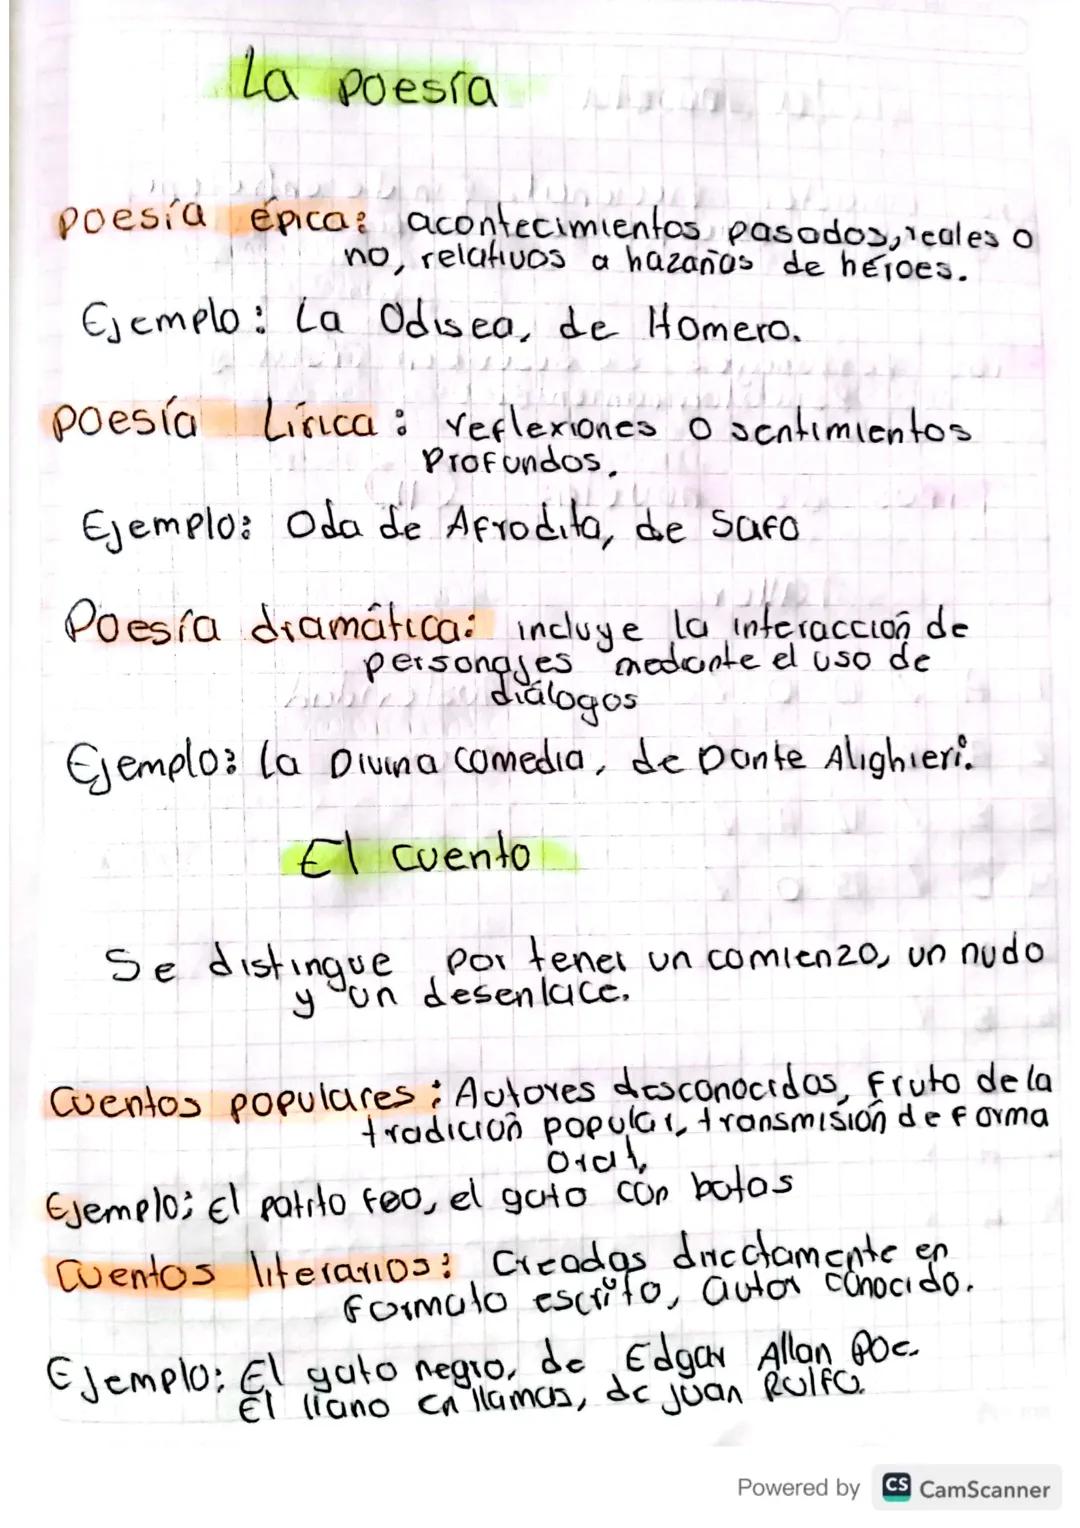 La poesía
poesía épica: acontecimientos pasados, reales o
no, relativos a hazañas de héroes.
Ejemplo: La Odisea, de Homero.
poesía Lírica: reflexiones o sentimientos
Profundos.
Ejemplo: Oda de Afrodita, de Safo
Poesía dramática: incluye la interacción de
personajes mediante el uso de
diálogos
Ejemplo: La Divina comedia, de Dante Alighieri.
El cuento
Se distingue por tener un comienzo, un nudo
y un desenlace.
Cuentos populares: Autores desconocidos, Fruto de la
tradición popular, transmisión de Forma
oral,
Ejemplo: El patito feo, el gato con botas
Cuentos literarios: Creadas directamente en
Formato escrito, autor conocido.
Ejemplo: El gato negro, de Edgar Allan Poe.
El llano en llamas, de Juan Rulfo.
Powered by CS CamScanner